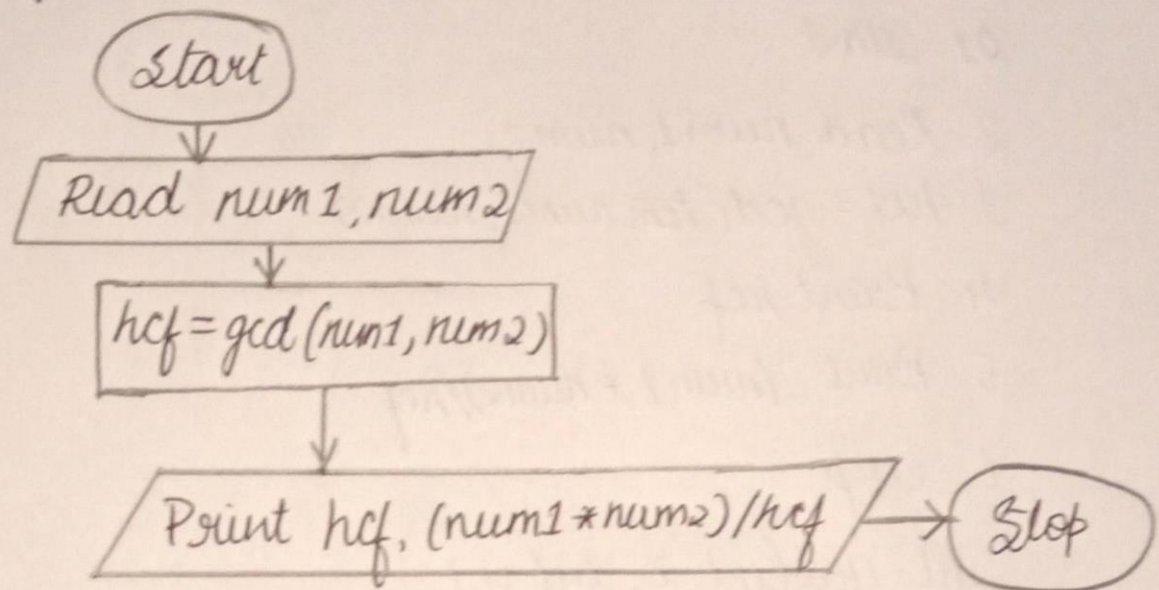 Start
Read num1, num2
hcf = gcd (num1, num2)
Print hcf, (num1 * num2) / hcf
Stop